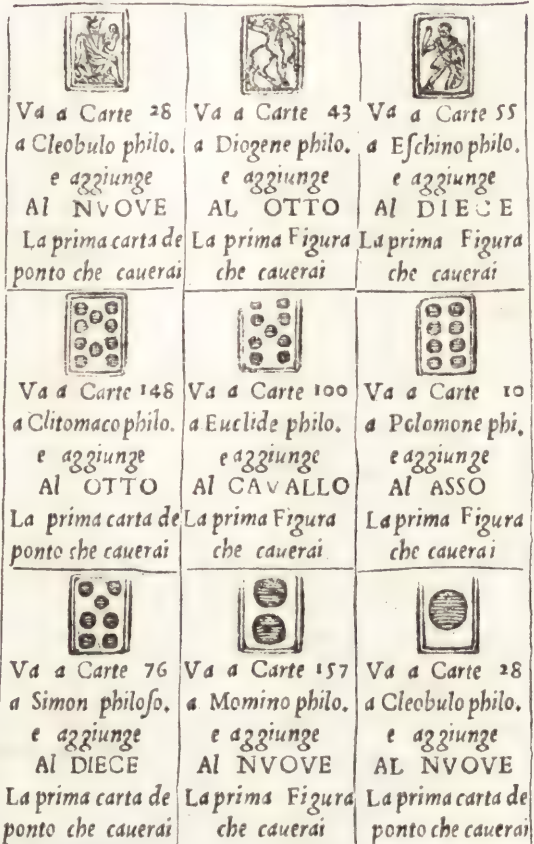 Va a Carte 28
a Cleobulo philo.
e aggiunge
Al NVOVE
La prima carta de
ponto che cauerai
Va a Carte 43
a Diogene philo.
e aggiunge
AL OTTO
La prima Figura
che cauerai
Va a Carte 55
a Eſchino philo.
e aggiunge
Al DIECE
La prima Figura
che cauerai
Va a Carte 148
a Clitomaco philo.
e aggiunge
Al OTTO
La prima carta de
ponto che cauerai
Va a Carte 100
a Euclide philo.
e aggiunge
Al CAVALLO
La prima Figura
che cauerai
Va a Carte 10
a Polomone phi.
e aggiunge
Al ASSO
La prima Figura
che cauerai
Va a Carte 76
a Simon philoſo.
e aggiunge
Al DIECE
La prima carta de
ponto che cauerai
Va a Carte 157
a Momino philo.
e aggiunge
Al NVOVE
La prima Figura
che cauerai
Va a Carte 28
a Cleobulo philo.
e aggiunge
AL NVOVE
La prima carta de
ponto che cauerai